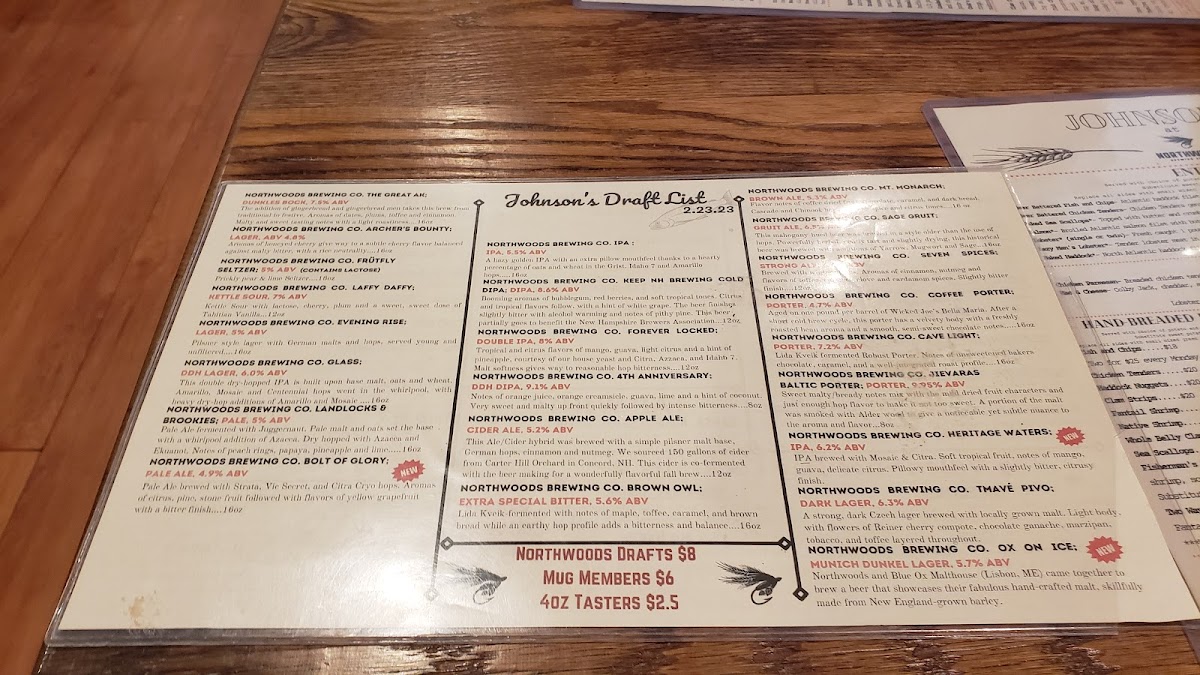 NORTHWOODS BREWING CO. THE GREAT AK;
DUNKLES BOCK, 7.5% ABV
The addition of gingerbread and gingerbread men takes this brew from
traditional to festive. Aromas of dates, plums, toffee and cinnamon.
Malty and sweet tasting notes with a light roastiness...16oz
NORTHWOODS BREWING CO. ARCHER'S BOUNTY;
LAGER, ABV 4.8%
Aromas of honeyed cherry give way to a subtle cherry flavor balanced
against malty notes with a rice neutrality...16oz
NORTHWOODS BREWING CO. FRÜTFLY
SELTZER; 5% ABV (CONTAINS LACTOSE)
Prickly pear & lime Seltzer...16oz
NORTHWOODS BREWING CO. LAFFY DAFFY;
KETTLE SOUR, 7% ABV
Kettle Sour with lactose, cherry, plum and a sweet, sweet dose of
Tahitian Vanilla...12oz
NORTHWOODS BREWING CO. EVENING RISE;
LAGER, 5% ABV
Pilsner style lager with German malts and hops, served young and
unfiltered....16oz
NORTHWOODS BREWING CO. GLASS;
DDH LAGER, 6.0% ABV
This double dry-hopped IPA is built upon base malt, oats and wheat.
Amarillo, Mosaic and Centennial hops went in the whirlpool, with
heavy dry-hop additions of Amarillo and Mosaic ....16oz
NORTHWOODS BREWING CO. LANDLOCKS &
BROOKIES; PALE, 5% ABV
Pale Ale fermented with Juggernaut. Pale malt and oats set the base
with a whirlpool addition of Azacca. Dry hopped with Azacca and
Ekuanot. Notes of peach rings, papaya, pineapple and lime....16oz
NORTHWOODS BREWING CO. BOLT OF GLORY;
PALE ALE, 4.9% ABV
NEW
Pale Ale brewed with Strata, Vic Secret, and Citra Cryo hops. Aromas
of citrus, pine, stone fruit followed with flavors of yellow grapefruit
with a bitter finish....16oz
Johnson's Draft List
2.23.23
NORTHWOODS BREWING CO. IPA ;
IPA, 5.5% ABV
A hazy golden IPA with an extra pillow mouthfeel thanks to a hearty
percentage of oats and wheat in the Grist. Idaho 7 and Amarillo
hops....16oz
NORTHWOODS BREWING CO. KEEP NH BREWING COLD
DIPA; DIPA, 8.6% ABV
Booming aromas of bubblegum, red berries, and soft tropical tones. Citrus
and tropical flavors follow, with a hint of white grape. The beer finishes
slightly bitter with alcohol warming and notes of pithy pine. This beer
partially goes to benefit the New Hampshire Brewers Association...12oz
NORTHWOODS BREWING CO. FOREVER LOCKED;
DOUBLE IPA, 8% ABV
Tropical and citrus flavors of mango, guava, light citrus and a hint of
pineapple, courtesy of our house yeast and Citra, Azzaca, and Idaho 7.
Malt softness gives way to reasonable hop bitterness....12oz
NORTHWOODS BREWING CO. 4TH ANNIVERSARY;
DDH DIPA, 9.1% ABV
Notes of orange juice, orange creamsicle, guava, lime and a hint of coconut.
Very sweet and malty up front quickly followed by intense bitterness....8oz
NORTHWOODS BREWING CO. APPLE ALE;
CIDER ALE, 5.2% ABV
This Ale/Cider hybrid was brewed with a simple pilsner malt base,
German hops, cinnamon and nutmeg. We sourced 150 gallons of cider
from Carter Hill Orchard in Concord, NH. This cider is co-fermented
with the beer making for a wonderfully flavorful fall brew....12oz
NORTHWOODS BREWING CO. BROWN OWL;
EXTRA SPECIAL BITTER, 5.6% ABV
Lida Kveik-fermented with notes of maple, toffee, caramel, and brown
bread while an earthy hop profile adds a bitterness and balance....16oz
NORTHWOODS DRAFTS $8
MUG MEMBERS $6
4OZ TASTERS $2.5
NORTHWOODS BREWING CO. MT. MONARCH;
BROWN ALE, 5.3% ABV
Flavor notes of coffee caramel, and dark bread.
Cascade and Chinook 16 oz
NORTHWOODS BREWING CO. SAGE GRUIT;
GRUIT ALE, 6.
This mahogany hued a style older than the use of
hops. Powerfully tart and slightly drying; this historical
beer was brewed Mugwort and Sage....16oz
NORTHWOODS BREWING CO. SEVEN SPICES;
STRONG AL
Brewed with Aromas of cinnamon, nutmeg and
flavors of clove and cardamom spices. Slightly bitter
finish....12oz
NORTHWOODS BREWING CO. COFFEE PORTER;
PORTER, 4.7% ABV
Aged on one pound per barrel of Wicked Joe's Bella Maria. After a
short cold brew cycle, this porter has a velvety body with a lively
roasted bean aroma and a smooth, semi-sweet chocolate notes....16oz
NORTHWOODS BREWING CO. CAVE LIGHT;
PORTER, 7.2% ABV
Lida Kveik fermented Robust Porter. Notes of unsweetened bakers
chocolate, caramel, and a well-integrated roast profile....16oz
NORTHWOODS BREWING CO. JIEVARAS
BALTIC PORTER; PORTER, 9.95% ABV
Sweet malty/bready notes mix with the mild dried fruit characters and
just enough hop flavor to make it not too sweet. A portion of the malt
was smoked with Alder wood to give a noticeable yet subtle nuance to
the aroma and flavor...8oz
NORTHWOODS BREWING CO. HERITAGE WATERS;
IPA, 6.2% ABV
NEW
IPA brewed with Mosaic & Citra. Soft tropical fruit, notes of mango,
guava, delicate citrus. Pillowy mouthfeel with a slightly bitter, citrusy
finish.
NORTHWOODS BREWING CO. TMAVÉ PIVO;
DARK LAGER, 6.3% ABV
A strong, dark Czech lager brewed with locally grown malt. Light body,
with flowers of Reiner cherry compote, chocolate ganache, marzipan,
tobacco, and toffee layered throughout.
NORTHWOODS BREWING CO. OX ON ICE;
MUNICH DUNKEL LAGER, 5.7% ABV
NEW
Northwoods and Blue Ox Malthouse (Lisbon, ME) came together to
brew a beer that showcases their fabulous hand-crafted malt, skillfully
made from New England-grown barley.
JOHNSO
NORTHW
EN
HAND BREADED
ish and Chips ... $13
Two for $25 every Monday
Chicken Tenders....$20
Haddock Nuggets...$2
Clam Strips.....$20
Fantail Shrimp
Native Shrimp
Whole Belly Cl
Sea Scallops
Fisherman's
shrimp, sc
Substitut
Two Wa